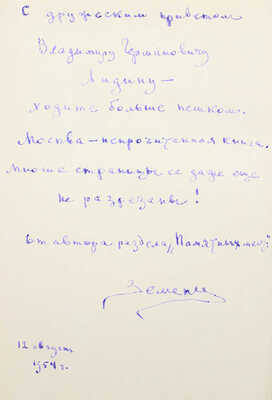 С дружеским приветом
Владимиру Германовичу
Лидину —
ходите больше пешком.
Москва — непрочитанная книга.
Многие страницы её даже ещё
не разрезаны!
от автора раздела „Памятных мест"
Земенк
12 августа
1954 г.